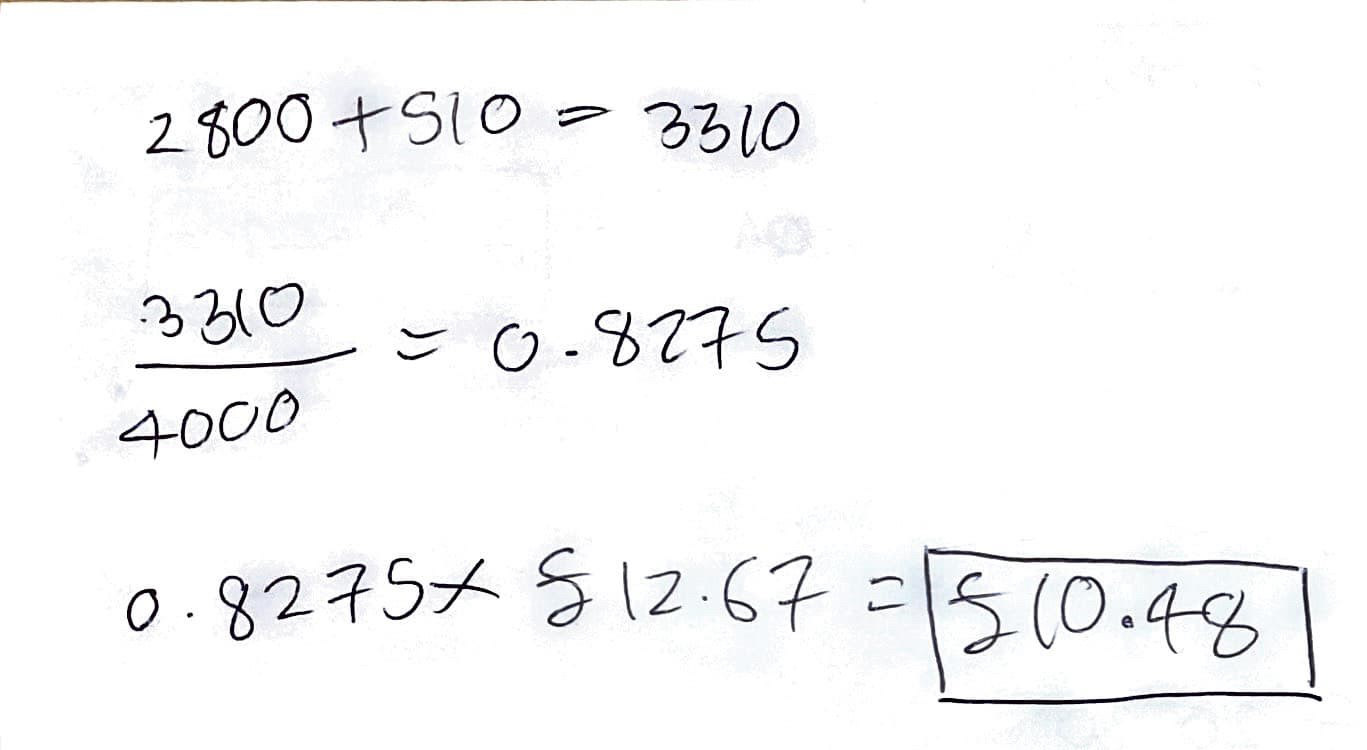 2800 + 510 = 3310
3310
4000
= 0.8275
0.8275 × £12.67 = £10.48